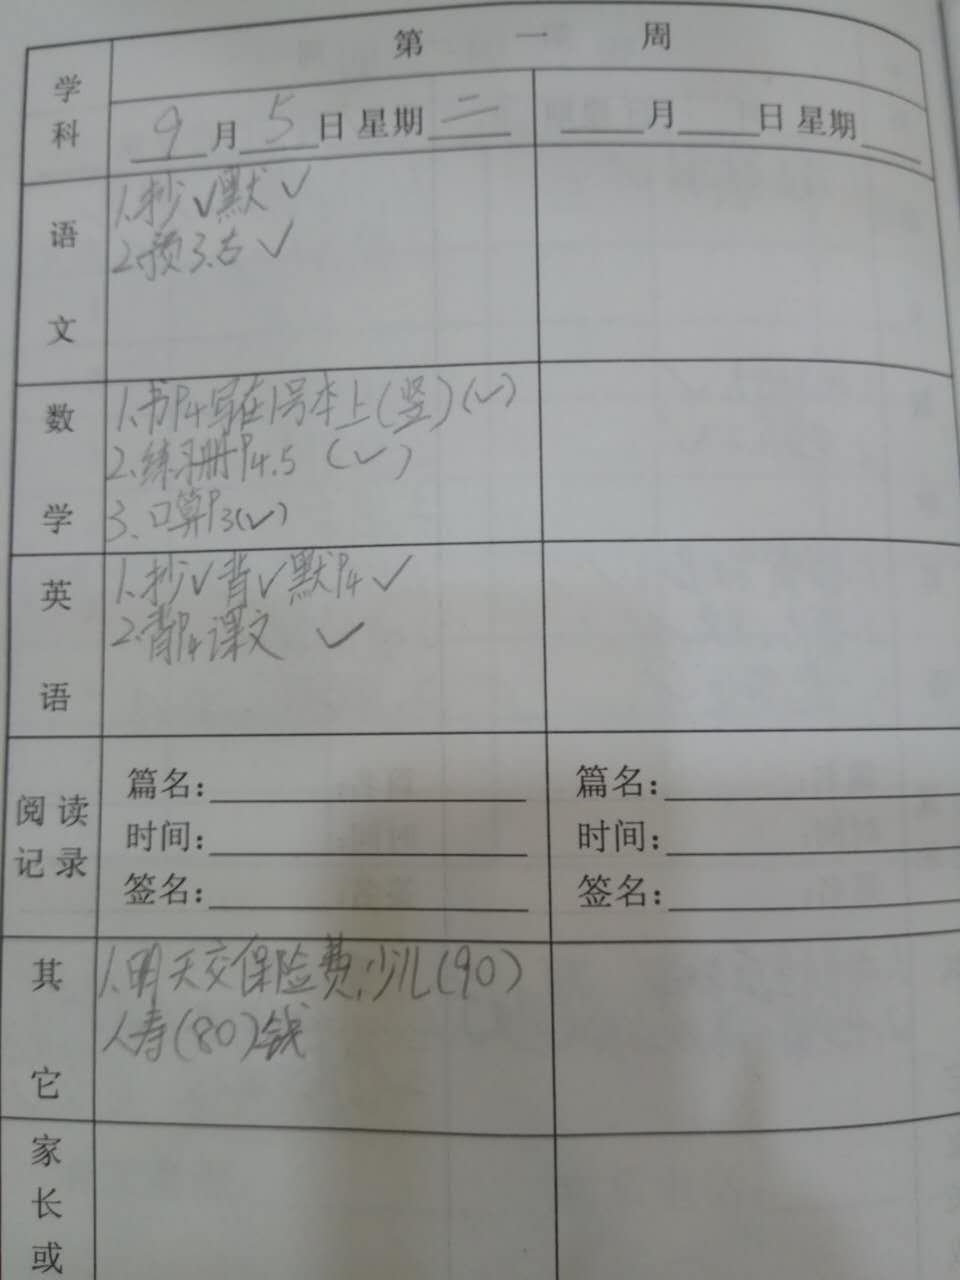 第 一 周
学科
9月5日 星期二
月 日 星期
语文
1.抄✓默✓
2.预3.古✓
数学
1.书P4写在1号本上(竖)(✓)
2.练习册P4.5 (✓)
3.口算P3(✓)
英语
1.抄✓背✓默P4✓
2.背P4课文 ✓
阅读记录
篇名:
时间:
签名:
篇名:
时间:
签名:
其它
1.明天交保险费,少儿(90)
人寿(80)钱
家长或